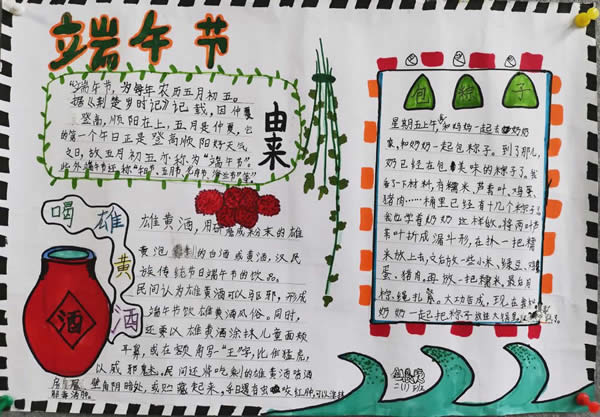 端午节
"端午节,为每年农历五月初五。
据《荆楚岁时记》记载,因仲夏
登高,顺阳在上,五月是仲夏,它
的第一个午日正是登高顺阳好天气
之日,故五月初五亦称为"端阳节"。
此外端午节还称"午日、五月节
由来
喝雄黄酒
酒
雄黄酒,用研磨成粉末的雄
黄泡制的白酒或黄酒,汉民
族传统节日端午节的饮品。
民间认为雄黄酒可以驱邪,形成
端午节饮雄黄酒风俗。同时,
还要以雄黄酒涂抹儿童面颊
耳鼻,或在额角写"王"字,比作猛虎,
以威邪魅。民间还将吃剩的雄黄酒喷洒
房屋壁角阴暗处,或贮藏起来,
包粽子
星期五上午,我和妈妈一起去奶奶
家,和奶奶一起包粽子。到了那儿,
奶奶已经在包美味的粽子了。我
看了下材料,有糯米、芦苇叶、鸡蛋、
猪肉……桶里已经有十几个粽子了。
我也学着奶奶这样做。将两片芦
苇叶折成漏斗形,在抓一把糯
米放上布,之后放一些小米、绿豆、鸡
蛋、猪肉,再放一把糯米,最后用
粽绳扎紧。大功告成,现在我
奶奶一起把粽子
二(1)班